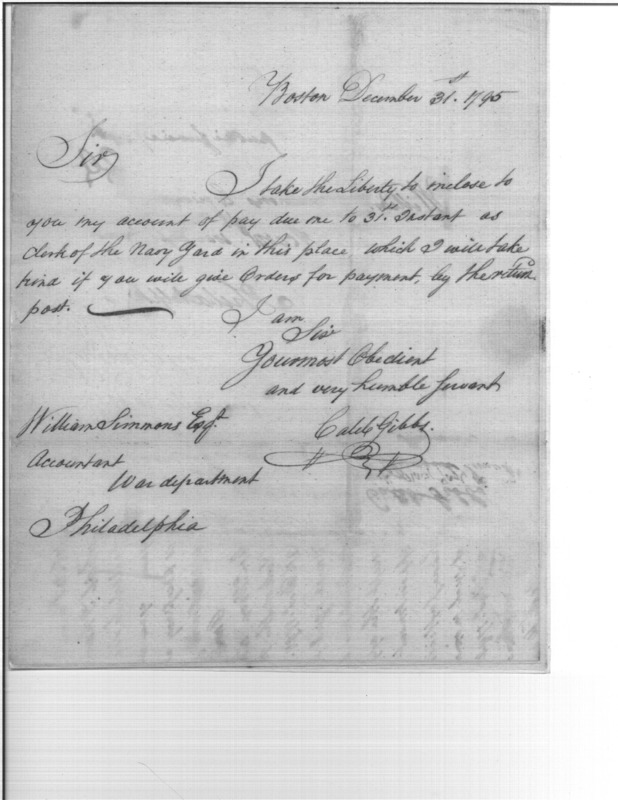 Boston December 31st. 1795
Sir
I take the Liberty to inclose to
you my account of pay due me to 31st Instant as
Clerk of the Navy Yard in this place, which I will take
kind if you will give Orders for payment, by the return
post.
I am
Sir
Your most Obedient
and very humble Servant
Caleb Gibbs.
William Simmons Esqr.
Accountant
War department
Philadelphia